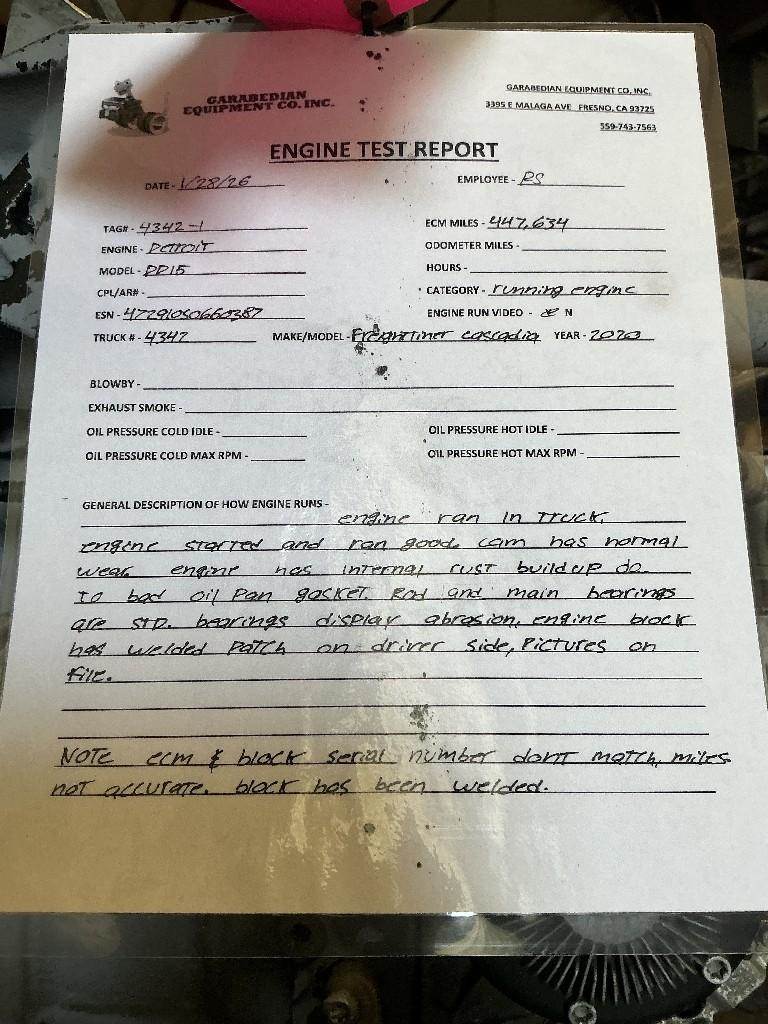 GARABEDIAN
EQUIPMENT CO. INC.
GARABEDIAN EQUIPMENT CO, INC.
3395 E MALAGA AVE FRESNO, CA 93725
559-743-7563
ENGINE TEST REPORT
DATE - 1/28/26 EMPLOYEE - RS
TAG# - 4342-1 ECM MILES - 447,634
ENGINE - DETROIT ODOMETER MILES -
MODEL - DD15 HOURS -
CPL/AR# - CATEGORY - running engine
ESN - 472910S0660387 ENGINE RUN VIDEO - N
TRUCK # - 4342 MAKE/MODEL - Freightliner cascadia YEAR - 2020
BLOWBY -
EXHAUST SMOKE -
OIL PRESSURE COLD IDLE - OIL PRESSURE HOT IDLE -
OIL PRESSURE COLD MAX RPM - OIL PRESSURE HOT MAX RPM -
GENERAL DESCRIPTION OF HOW ENGINE RUNS -
engine ran in truck.
engine started and ran good. cam has normal
wear. engine has internal rust buildup do
to bad oil pan gasket. Rod and main bearings
are STD. bearings display abrasion. engine block
has welded patch on driver side, Pictures on
file.
NOTE ecm & block serial number dont match, miles
not accurate. block has been welded.